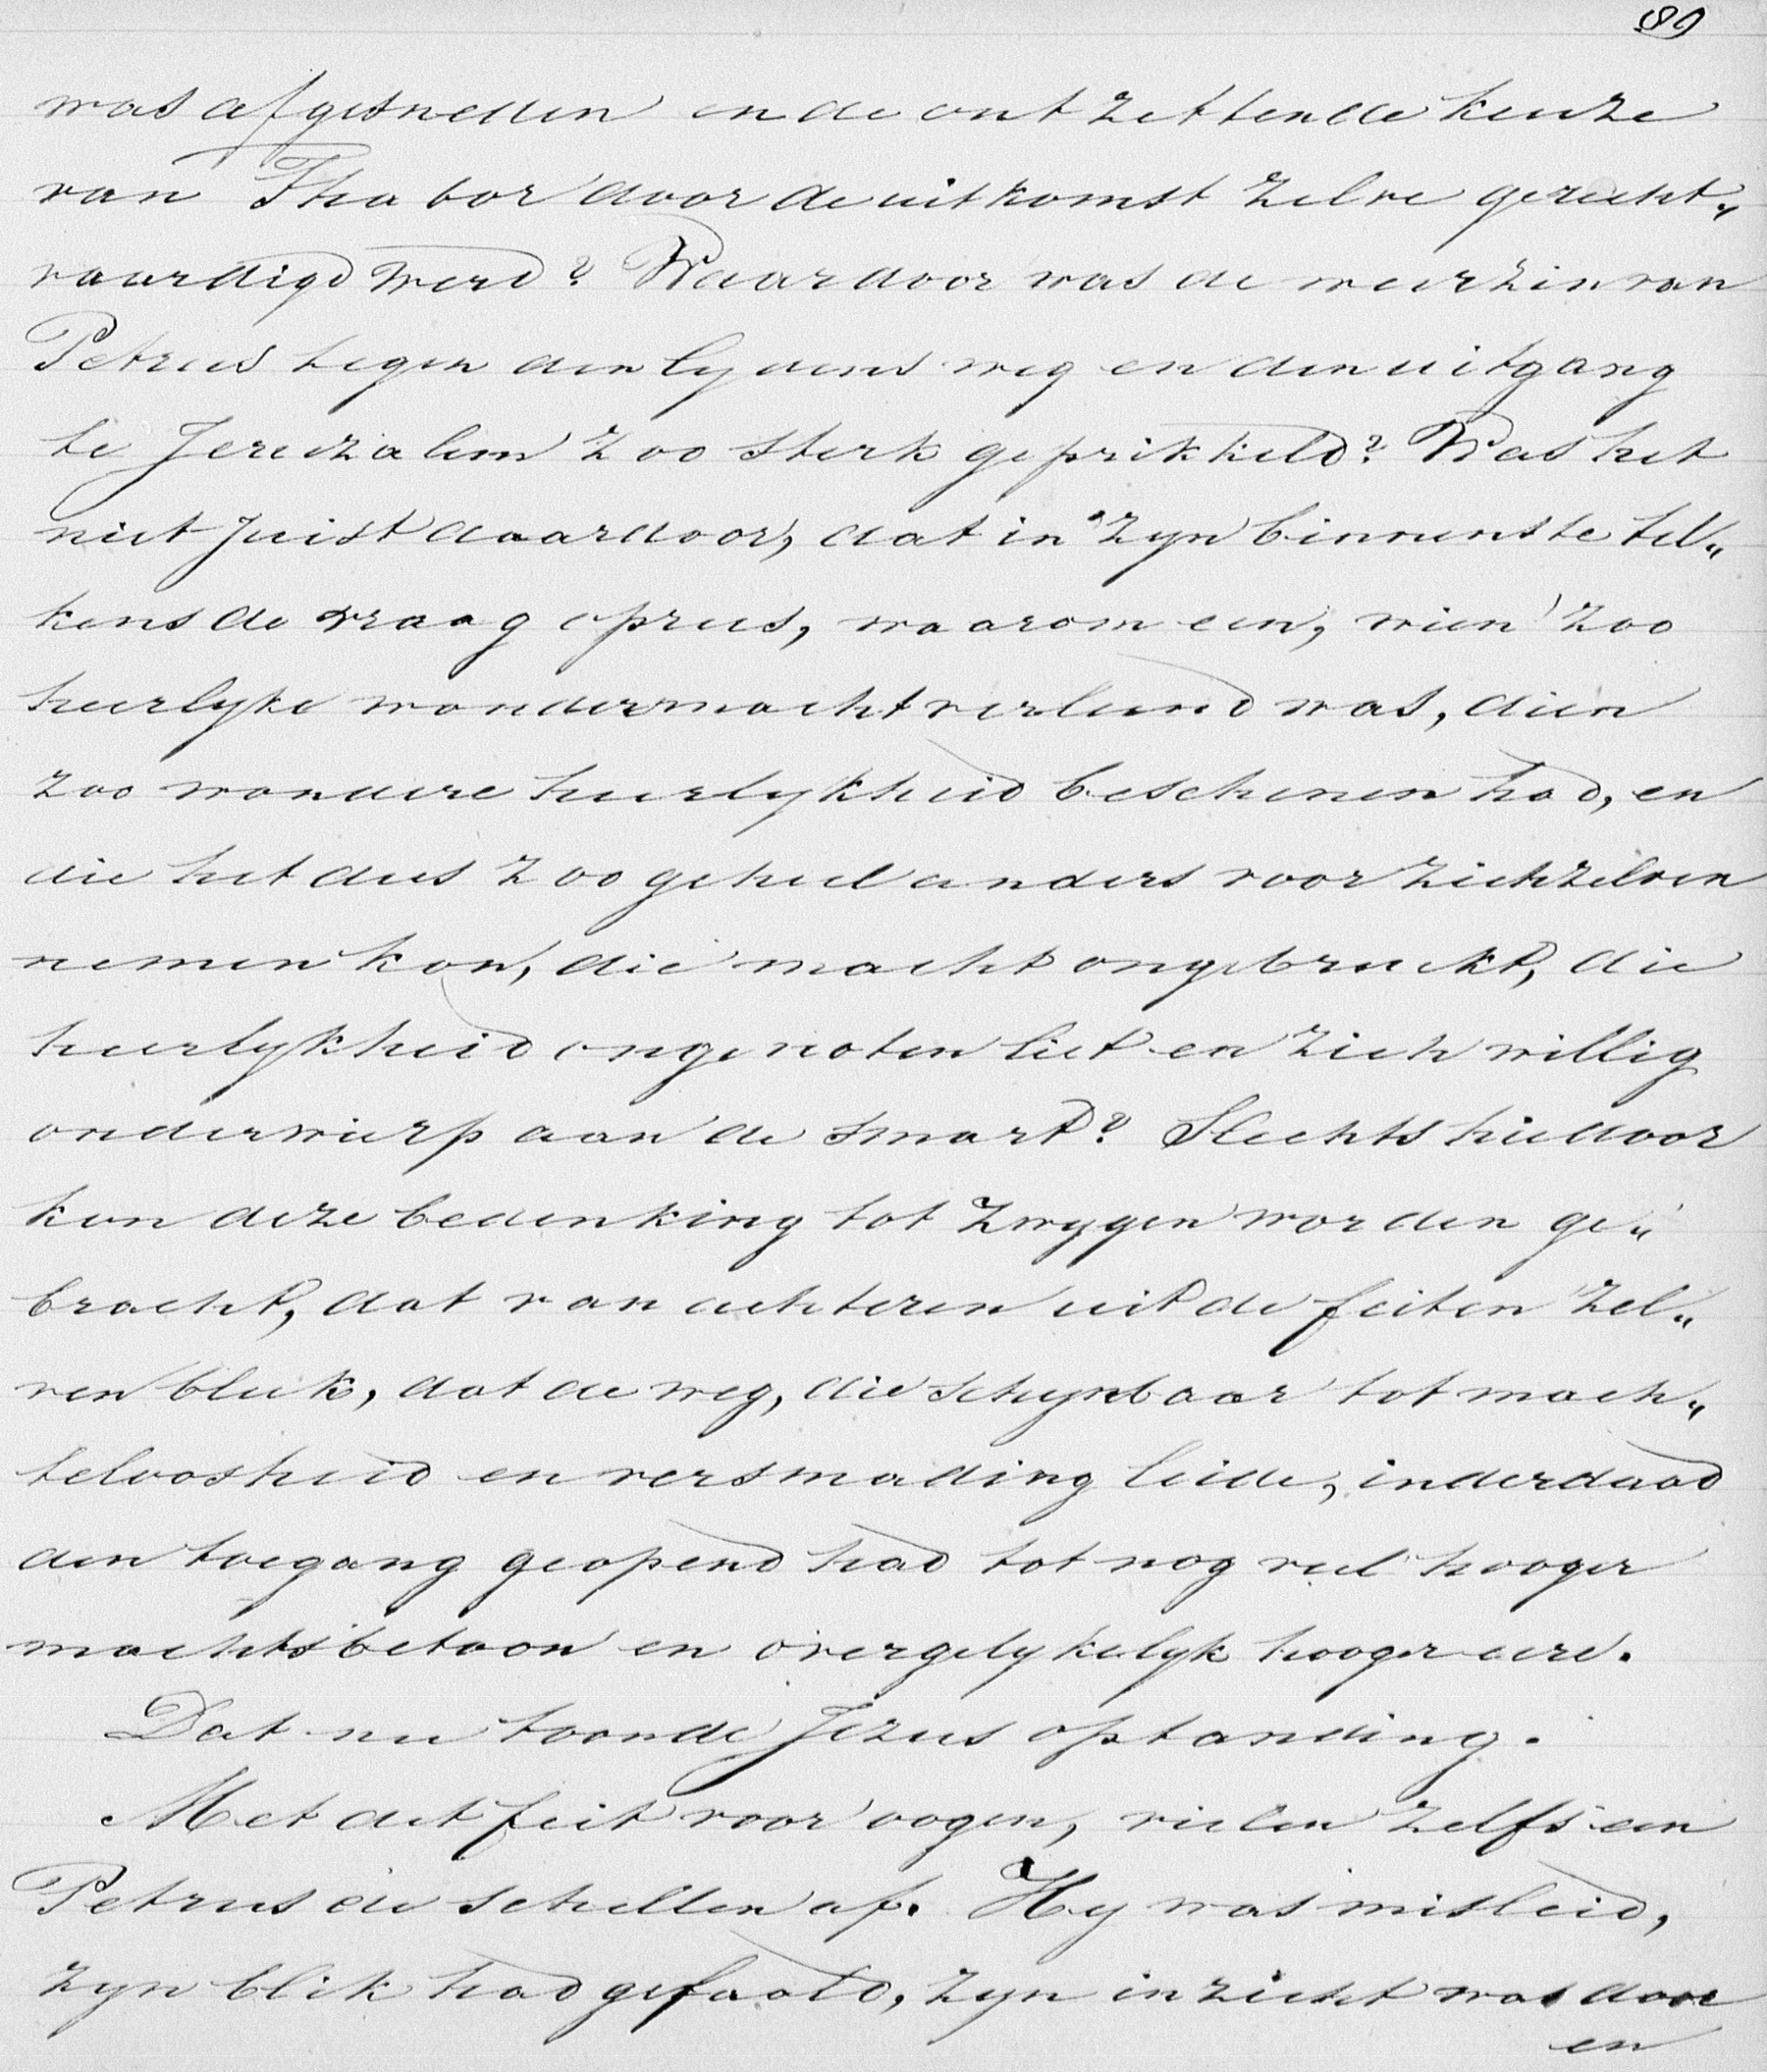 89
was afgesneden en de ontzettende keuze
van Thabor door de uitkomst zelve gerecht„
vaardigd werd? Waardoor was de weerzin van
Petrus tegen den lydensweg en den uitgang
te Jeruzalem zoo sterk geprikkeld? Was het
niet juist daardoor, dat in zyn binnenste tel„
kens de vraag oprees, waarom een, wien zoo
heerlyke wondermacht verleend was, dien
zoo wondere heerlykheid beschenen had, en
die het dus zoo geheel anders voor zichzelven
nemen kon, die macht ongebruikt, die
heerlykheid ongenoten liet en zich willig
onderwierp aan de smart? Slechts hierdoor
kon deze bedenking tot zwygen worden ge„
bracht, dat van achteren uit de feiten zel„
ven bleek, dat de weg, die schynbaar tot mach„
teloosheid en versmading leidde, inderdaad
den toegang geopend had tot nog veel hooger
machtsbetoon en overgelykelyk hooger eere.
Dat nu toonde Jezus opstanding.
Met dit feit voor oogen, vielen zelfs een
Petrus de schellen af. Hy was misleid,
zyn blik had gefaald, zyn inzicht was door
en